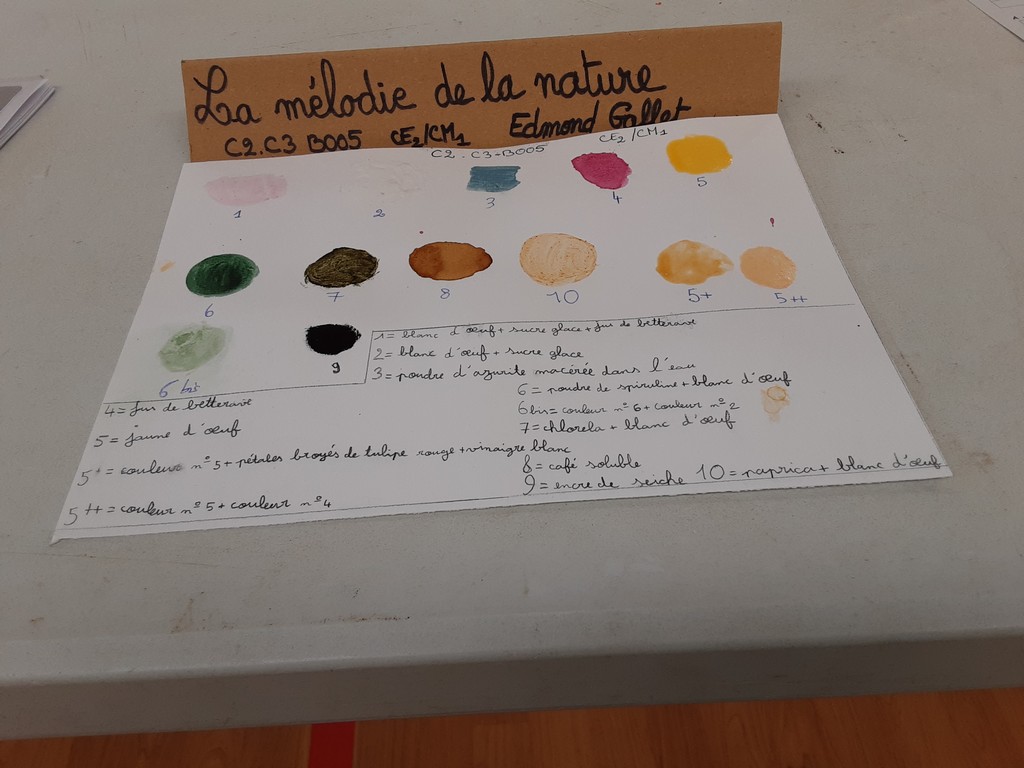 La mélodie de la nature
C2.C3 B005 CE2/CM1 Edmond Gallet
C2.C3-B005 CE2/CM1
1 2 3 4 5
6 7 8 10 5+ 5++
6 bis 9
1= blanc d'œuf + sucre glace + jus de betterave
2= blanc d'œuf + sucre glace
3= poudre d'azurite macérée dans l'eau
4= jus de betterave
5= jaune d'œuf
5+= couleur n°5 + pétales broyés de tulipe rouge + vinaigre blanc
5++= couleur n°5 + couleur n°4
6= poudre de spiruline + blanc d'œuf
6bis= couleur n°6 + couleur n°2
7= chlorela + blanc d'œuf
8= café soluble
9= encre de seiche 10= paprica + blanc d'œuf